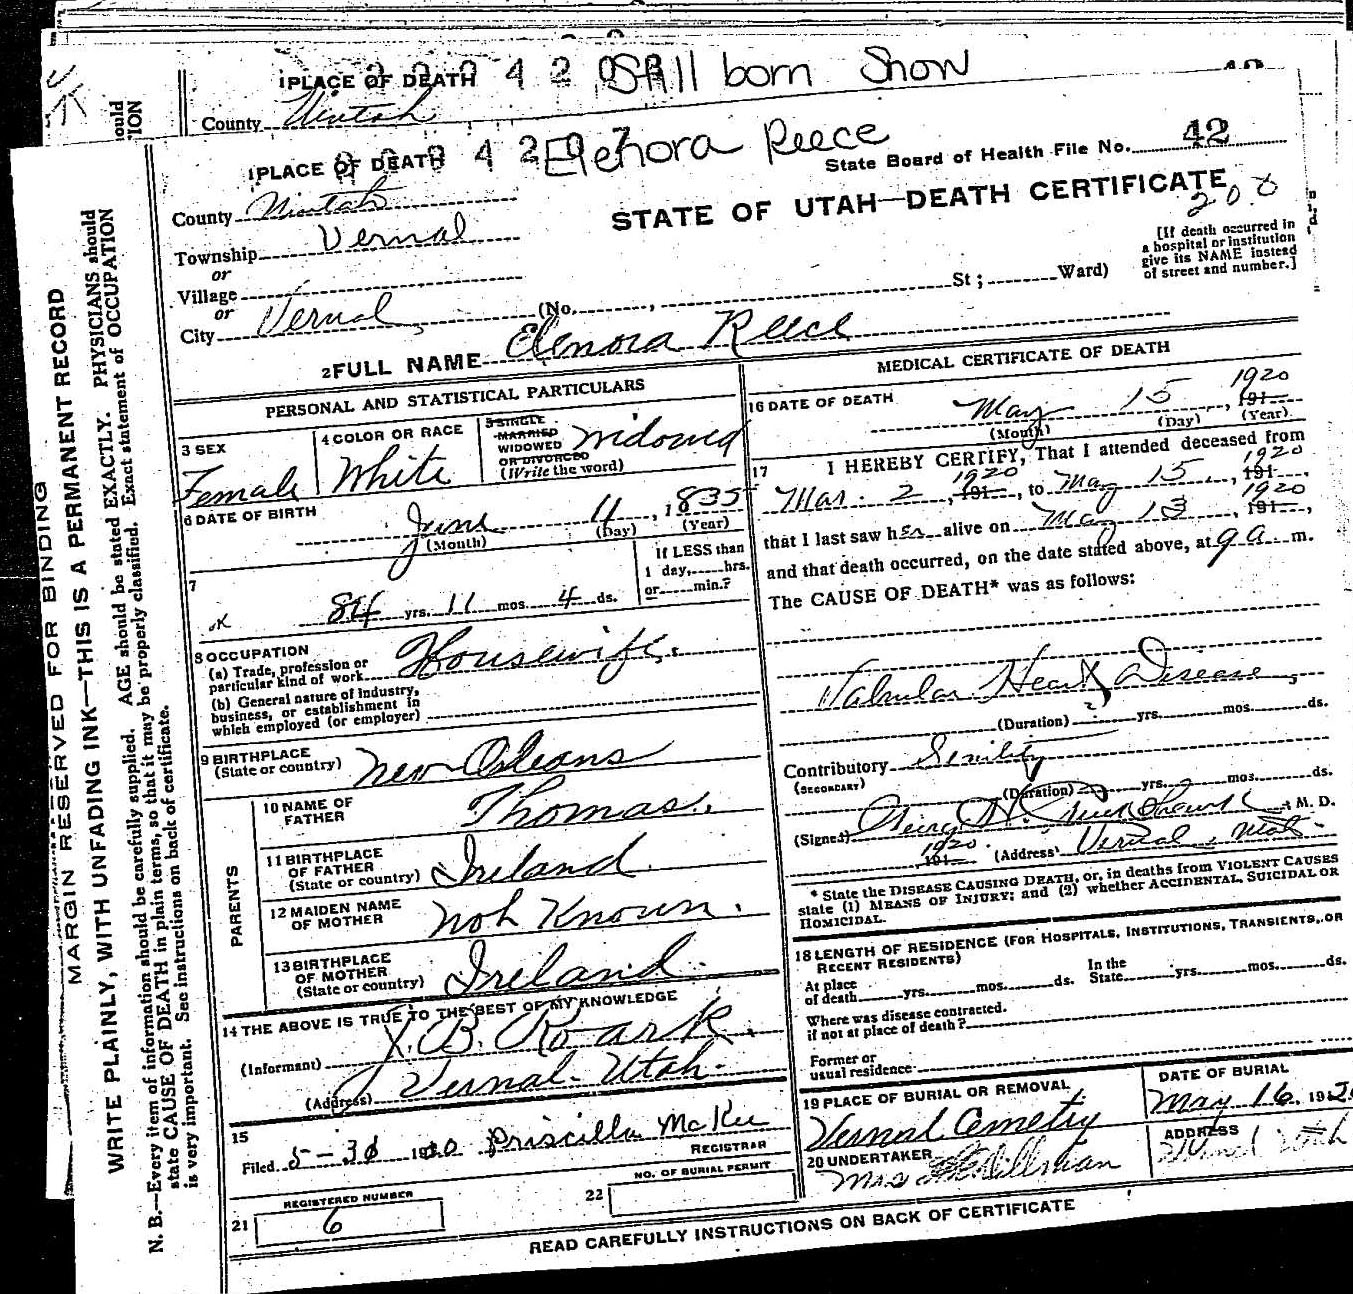 1 PLACE OF DEATH
Still born Snow
County Uintah
1 PLACE OF DEATH
Elenora Reece
State Board of Health File No. 42
County Uintah
STATE OF UTAH—DEATH CERTIFICATE
200
Township Vernal
or
Village
or
City Vernal
(No. , St; Ward)
[If death occurred in
a hospital or institution
give its NAME instead
of street and number.]
2 FULL NAME Elenora Reece
PERSONAL AND STATISTICAL PARTICULARS
3 SEX
Female
4 COLOR OR RACE
White
5 SINGLE
MARRIED
WIDOWED
OR DIVORCED
(Write the word)
Widowed
6 DATE OF BIRTH
June 11, 1835
(Month) (Day) (Year)
7
If LESS than
1 day, hrs.
or min.?
OK 84 yrs. 11 mos. 4 ds.
8 OCCUPATION
(a) Trade, profession or
particular kind of work Housewife.
(b) General nature of industry,
business, or establishment in
which employed (or employer)
9 BIRTHPLACE
(State or country) New Orleans
PARENTS
10 NAME OF
FATHER Thomas.
11 BIRTHPLACE
OF FATHER
(State or country) Ireland.
12 MAIDEN NAME
OF MOTHER Not Known.
13 BIRTHPLACE
OF MOTHER
(State or country) Ireland.
14 THE ABOVE IS TRUE TO THE BEST OF MY KNOWLEDGE
(Informant) X. B. Roark.
(Address) Vernal - Utah.
15
Filed 5-30 1920 Priscilla McKee
REGISTRAR
21 REGISTERED NUMBER
6
22 NO. OF BURIAL PERMIT
MEDICAL CERTIFICATE OF DEATH
16 DATE OF DEATH
May 15, 1920 191
(Month) (Day) (Year)
17 I HEREBY CERTIFY, That I attended deceased from
Mar. 2, 1920 191, to May 15, 1920 191,
that I last saw her alive on May 13, 1920 191,
and that death occurred, on the date stated above, at 9 a. m.
The CAUSE OF DEATH* was as follows:
Valvular Heart Disease,
(Duration) ? yrs. mos. ds.
Contributory Senility
(SECONDARY)
(Duration) yrs. mos. ds.
(Signed) M. D.
1920 191 (Address) Vernal, Utah.
* State the DISEASE CAUSING DEATH, or, in deaths from VIOLENT CAUSES
state (1) MEANS OF INJURY; and (2) whether ACCIDENTAL, SUICIDAL OR
HOMICIDAL.
18 LENGTH OF RESIDENCE (FOR HOSPITALS, INSTITUTIONS, TRANSIENTS, OR
RECENT RESIDENTS)
At place
of death yrs. mos. ds.
In the
State yrs. mos. ds.
Where was disease contracted.
if not at place of death?
Former or
usual residence
19 PLACE OF BURIAL OR REMOVAL
Vernal Cemetry
DATE OF BURIAL
May 16, 1920
20 UNDERTAKER
Mrs
ADDRESS
Vernal Utah
READ CAREFULLY INSTRUCTIONS ON BACK OF CERTIFICATE
MARGIN RESERVED FOR BINDING
WRITE PLAINLY, WITH UNFADING INK—THIS IS A PERMANENT RECORD
N. B.—Every item of information should be carefully supplied. AGE should be stated EXACTLY. PHYSICIANS should
state CAUSE OF DEATH in plain terms, so that it may be properly classified. Exact statement of OCCUPATION
is very important. See instructions on back of certificate.